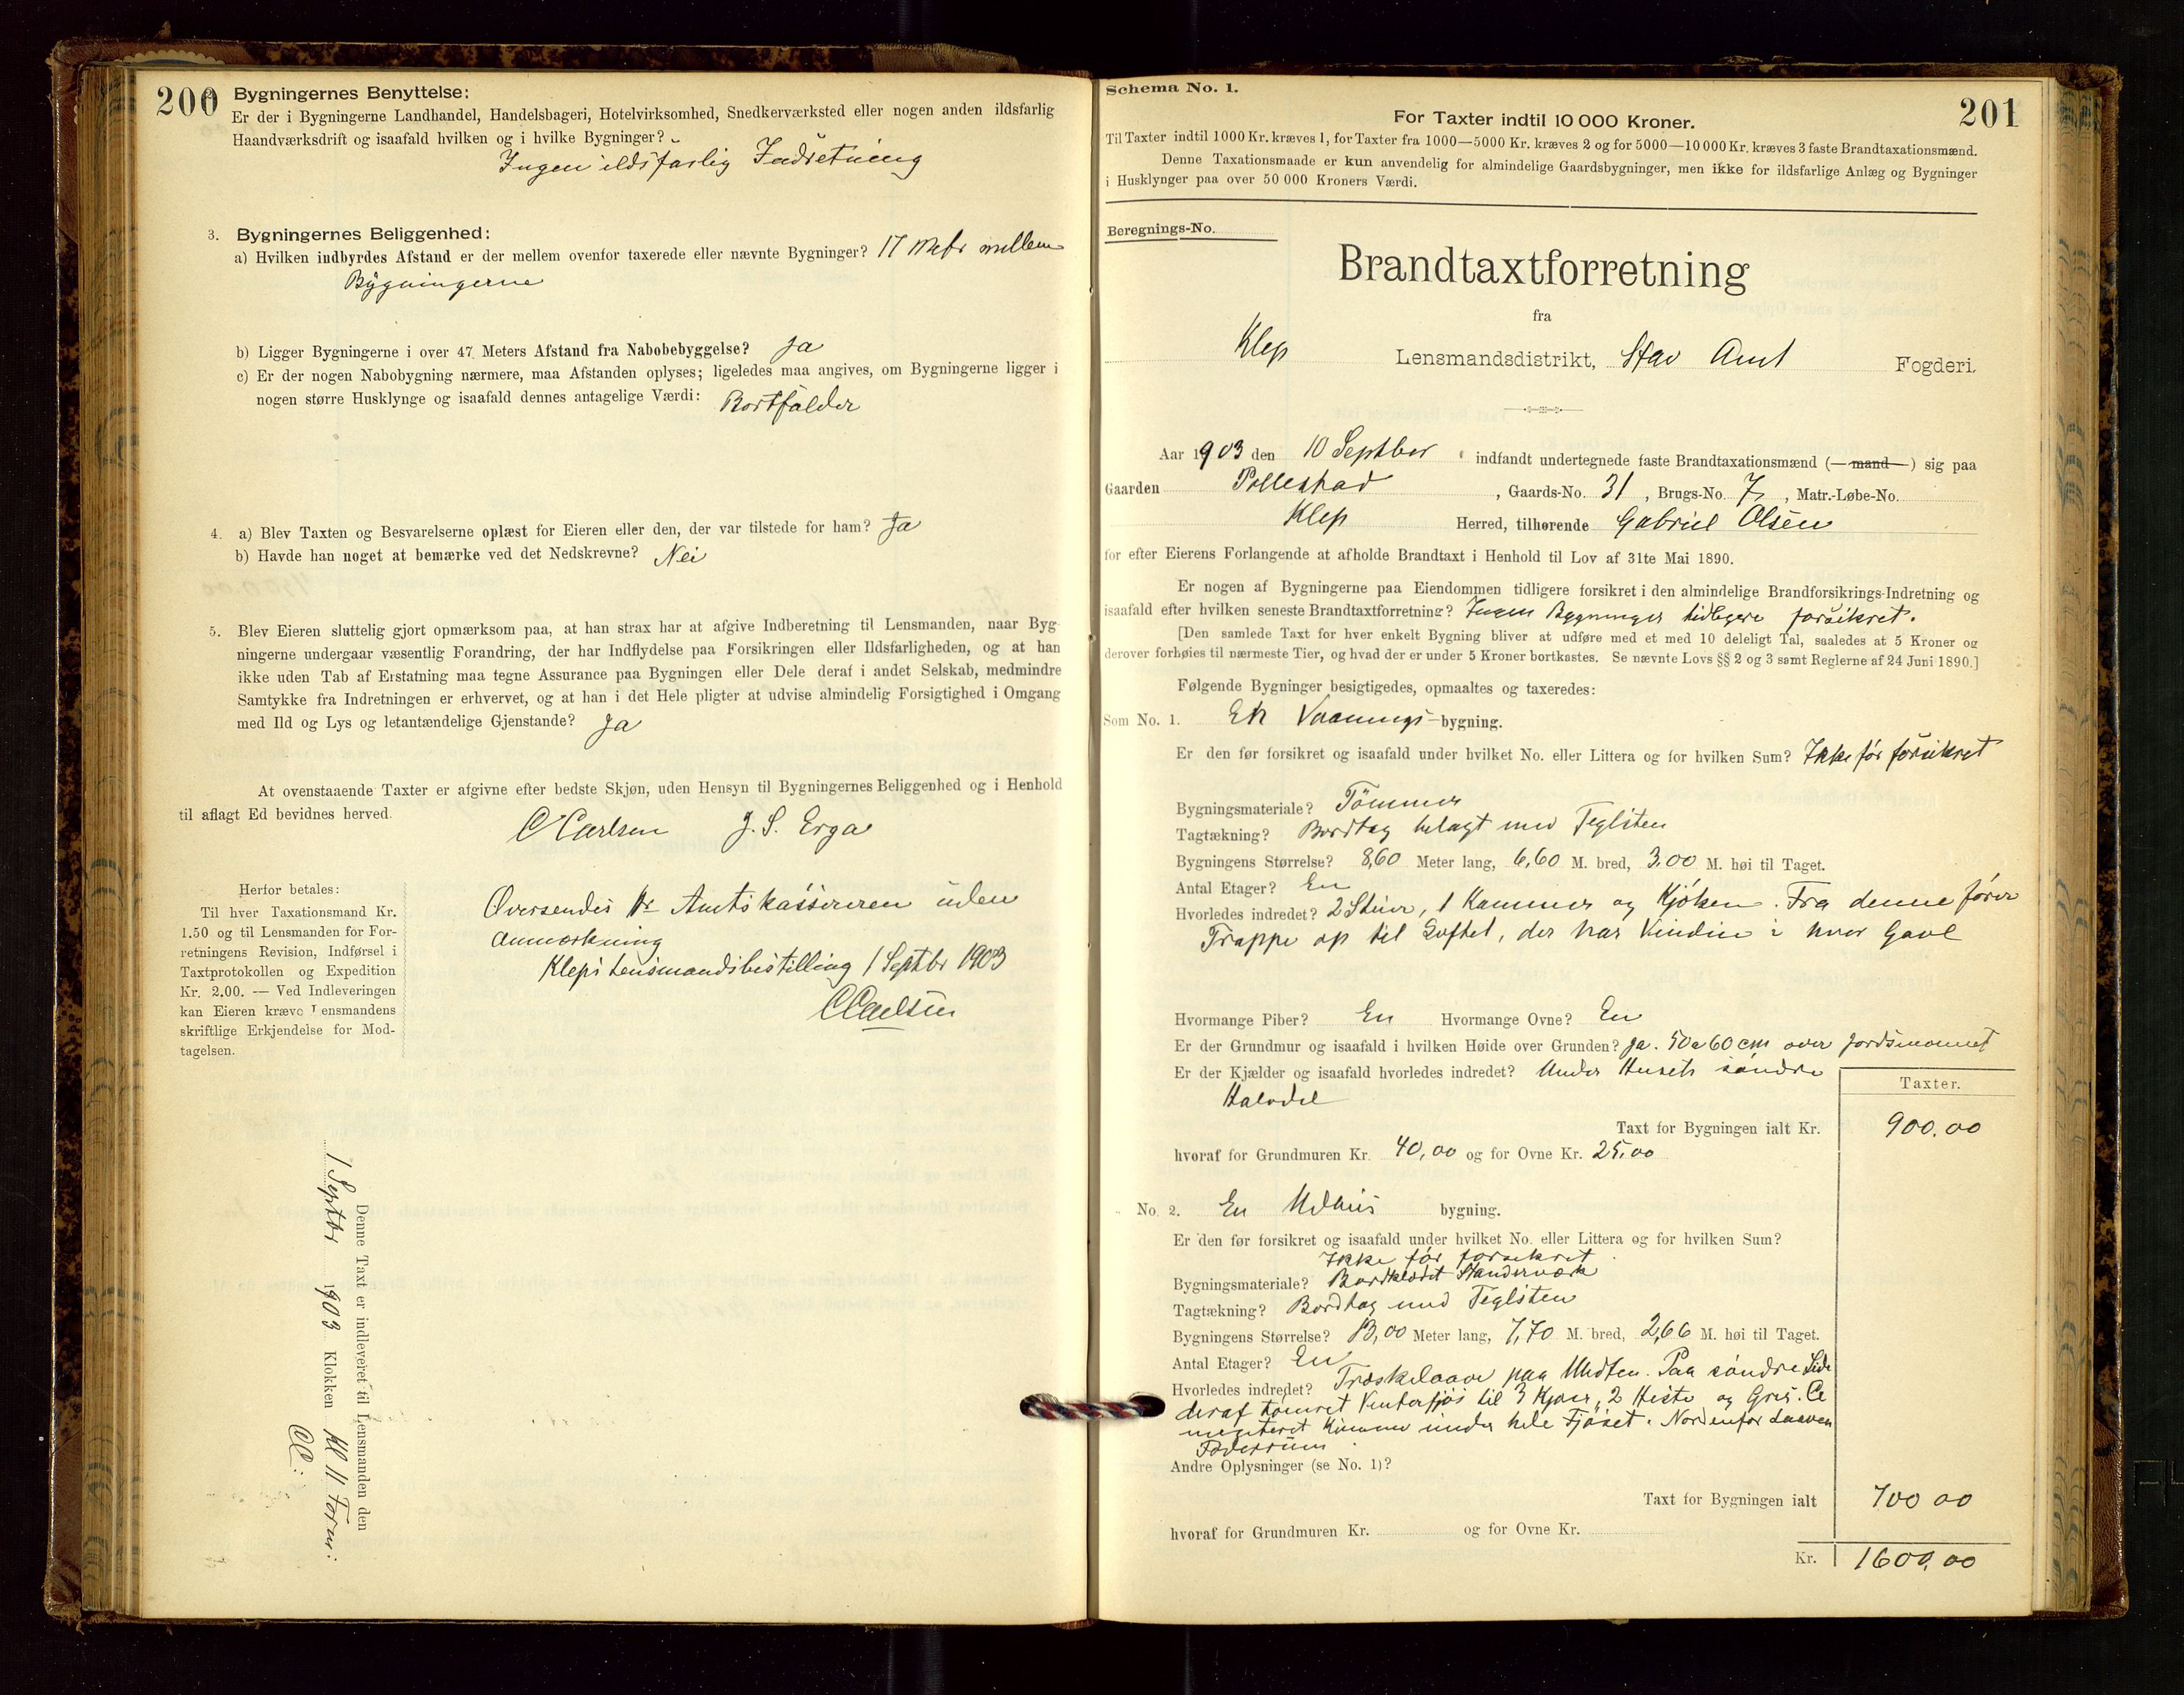 200
2. Bygningernes Benyttelse:
Er der i Bygningerne Landhandel, Handelsbageri, Hotelvirksomhed, Snedkerværksted eller nogen anden ildsfarlig
Haandværksdrift og isaafald hvilken og i hvilke Bygninger?
Ingen ildsfarlig Indretning
3. Bygningernes Beliggenhed:
a) Hvilken indbyrdes Afstand er der mellem ovenfor taxerede eller nævnte Bygninger? 17 Metr mellem
Bygningerne
b) Ligger Bygningerne i over 47 Meters Afstand fra Nabobebyggelse? Ja
c) Er der nogen Nabobygning nærmere, maa Afstanden oplyses; ligeledes maa angives, om Bygningerne ligger i
nogen større Husklynge og isaafald dennes antagelige Værdi: Bortfalder
4. a) Blev Taxten og Besvarelserne oplæst for Eieren eller den, der var tilstede for ham? Ja
b) Havde han noget at bemærke ved det Nedskrevne? Nei
5. Blev Eieren sluttelig gjort opmærksom paa, at han strax har at afgive Indberetning til Lensmanden, naar Byg-
ningerne undergaar væsentlig Forandring, der har Indflydelse paa Forsikringen eller Ildsfarligheden, og at han
ikke uden Tab af Erstatning maa tegne Assurance paa Bygningen eller Dele deraf i andet Selskab, medmindre
Samtykke fra Indretningen er erhvervet, og at han i det Hele pligter at udvise almindelig Forsigtighed i Omgang
med Ild og Lys og letantændelige Gjenstande? Ja
At ovenstaaende Taxter er afgivne efter bedste Skjøn, uden Hensyn til Bygningernes Beliggenhed og i Henhold
til aflagt Ed bevidnes herved.
C Carlsen J. S. Erga
Herfor betales:
Til hver Taxationsmand Kr.
1.50 og til Lensmanden for For-
retningens Revision, Indførsel i
Taxtprotokollen og Expedition
Kr. 2.00. — Ved Indleveringen
kan Eieren kræve Lensmandens
skriftlige Erkjendelse for Mod-
tagelsen.
Oversendes Hr Amtskassereren uden
Anmærkning
Kleps Lensmandsbestilling 1 Septbr 1903
C Carlsen
Denne Taxt er indleveret til Lensmanden den
1 Septbr 1903 Klokken Kl 11 Form:
CC:
Schema No. 1.
201
For Taxter indtil 10 000 Kroner.
Til Taxter indtil 1000 Kr. kræves 1, for Taxter fra 1000—5000 Kr. kræves 2 og for 5000—10 000 Kr. kræves 3 faste Brandtaxationsmænd.
Denne Taxationsmaade er kun anvendelig for almindelige Gaardsbygninger, men ikke for ildsfarlige Anlæg og Bygninger
i Husklynger paa over 50 000 Kroners Værdi.
Beregnings-No.
Brandtaxtforretning
fra
Klep Lensmandsdistrikt, Stav Amt Fogderi.
Aar 1903 den 10 Septbor indfandt undertegnede faste Brandtaxationsmænd (—mand—) sig paa
Gaarden Pollestad, Gaards-No. 31, Brugs-No. 7, Matr.-Løbe-No.
Klep Herred, tilhørende Gabriel Olsen
for efter Eierens Forlangende at afholde Brandtaxt i Henhold til Lov af 31te Mai 1890.
Er nogen af Bygningerne paa Eiendommen tidligere forsikret i den almindelige Brandforsikrings-Indretning og
isaafald efter hvilken seneste Brandtaxtforretning? Ingen Bygninger tidligere forsikret.
[Den samlede Taxt for hver enkelt Bygning bliver at udføre med et med 10 deleligt Tal, saaledes at 5 Kroner og
derover forhøies til nærmeste Tier, og hvad der er under 5 Kroner bortkastes. Se nævnte Lovs §§ 2 og 3 samt Reglerne af 24 Juni 1890.]
Følgende Bygninger besigtigedes, opmaaltes og taxeredes:
Som No. 1. En Vaanings-bygning.
Er den før forsikret og isaafald under hvilket No. eller Littera og for hvilken Sum? Ikke før forsikret
Bygningsmateriale? Tømmer
Tagtækning? Bordtag belagt med Teglsten
Bygningens Størrelse? 8,60 Meter lang, 6,60 M. bred, 3.00 M. høi til Taget.
Antal Etager? En
Hvorledes indredet? 2 Stuer, 1 Kammer og Kjøken. Fra denne fører
Trappe op til Loftet, der har Vindue i hver Gavl
Hvormange Piber? En Hvormange Ovne? En
Er der Grundmur og isaafald i hvilken Høide over Grunden? Ja. 50 a 60 cm over Jordsmonnet
Er der Kjælder og isaafald hvorledes indredet? Under Husets søndre
Halvdel
Taxter.
Taxt for Bygningen ialt Kr. 900.00
hvoraf for Grundmuren Kr. 40,00 og for Ovne Kr. 25,00
No. 2. En Udhus bygning.
Er den før forsikret og isaafald under hvilket No. eller Littera og for hvilken Sum?
Ikke før forsikret.
Bygningsmateriale? Bordklædt Standerværk
Tagtækning? Bordtag med Teglsten
Bygningens Størrelse? 13,00 Meter lang, 7,70 M. bred, 2,66 M. høi til Taget.
Antal Etager? En
Hvorledes indredet? Træskelaave paa Midten. Paa søndre Side
deraf tømret Vinterfjøs til 3 Kjøer, 2 Heste og Gris. Ce
menteret Kumme under hele Fjøset. Nordenfor Laaven
Foderrum.
Andre Oplysninger (se No. 1)?
Taxt for Bygningen ialt 700 00
hvoraf for Grundmuren Kr. og for Ovne Kr.
Kr. 1600,00